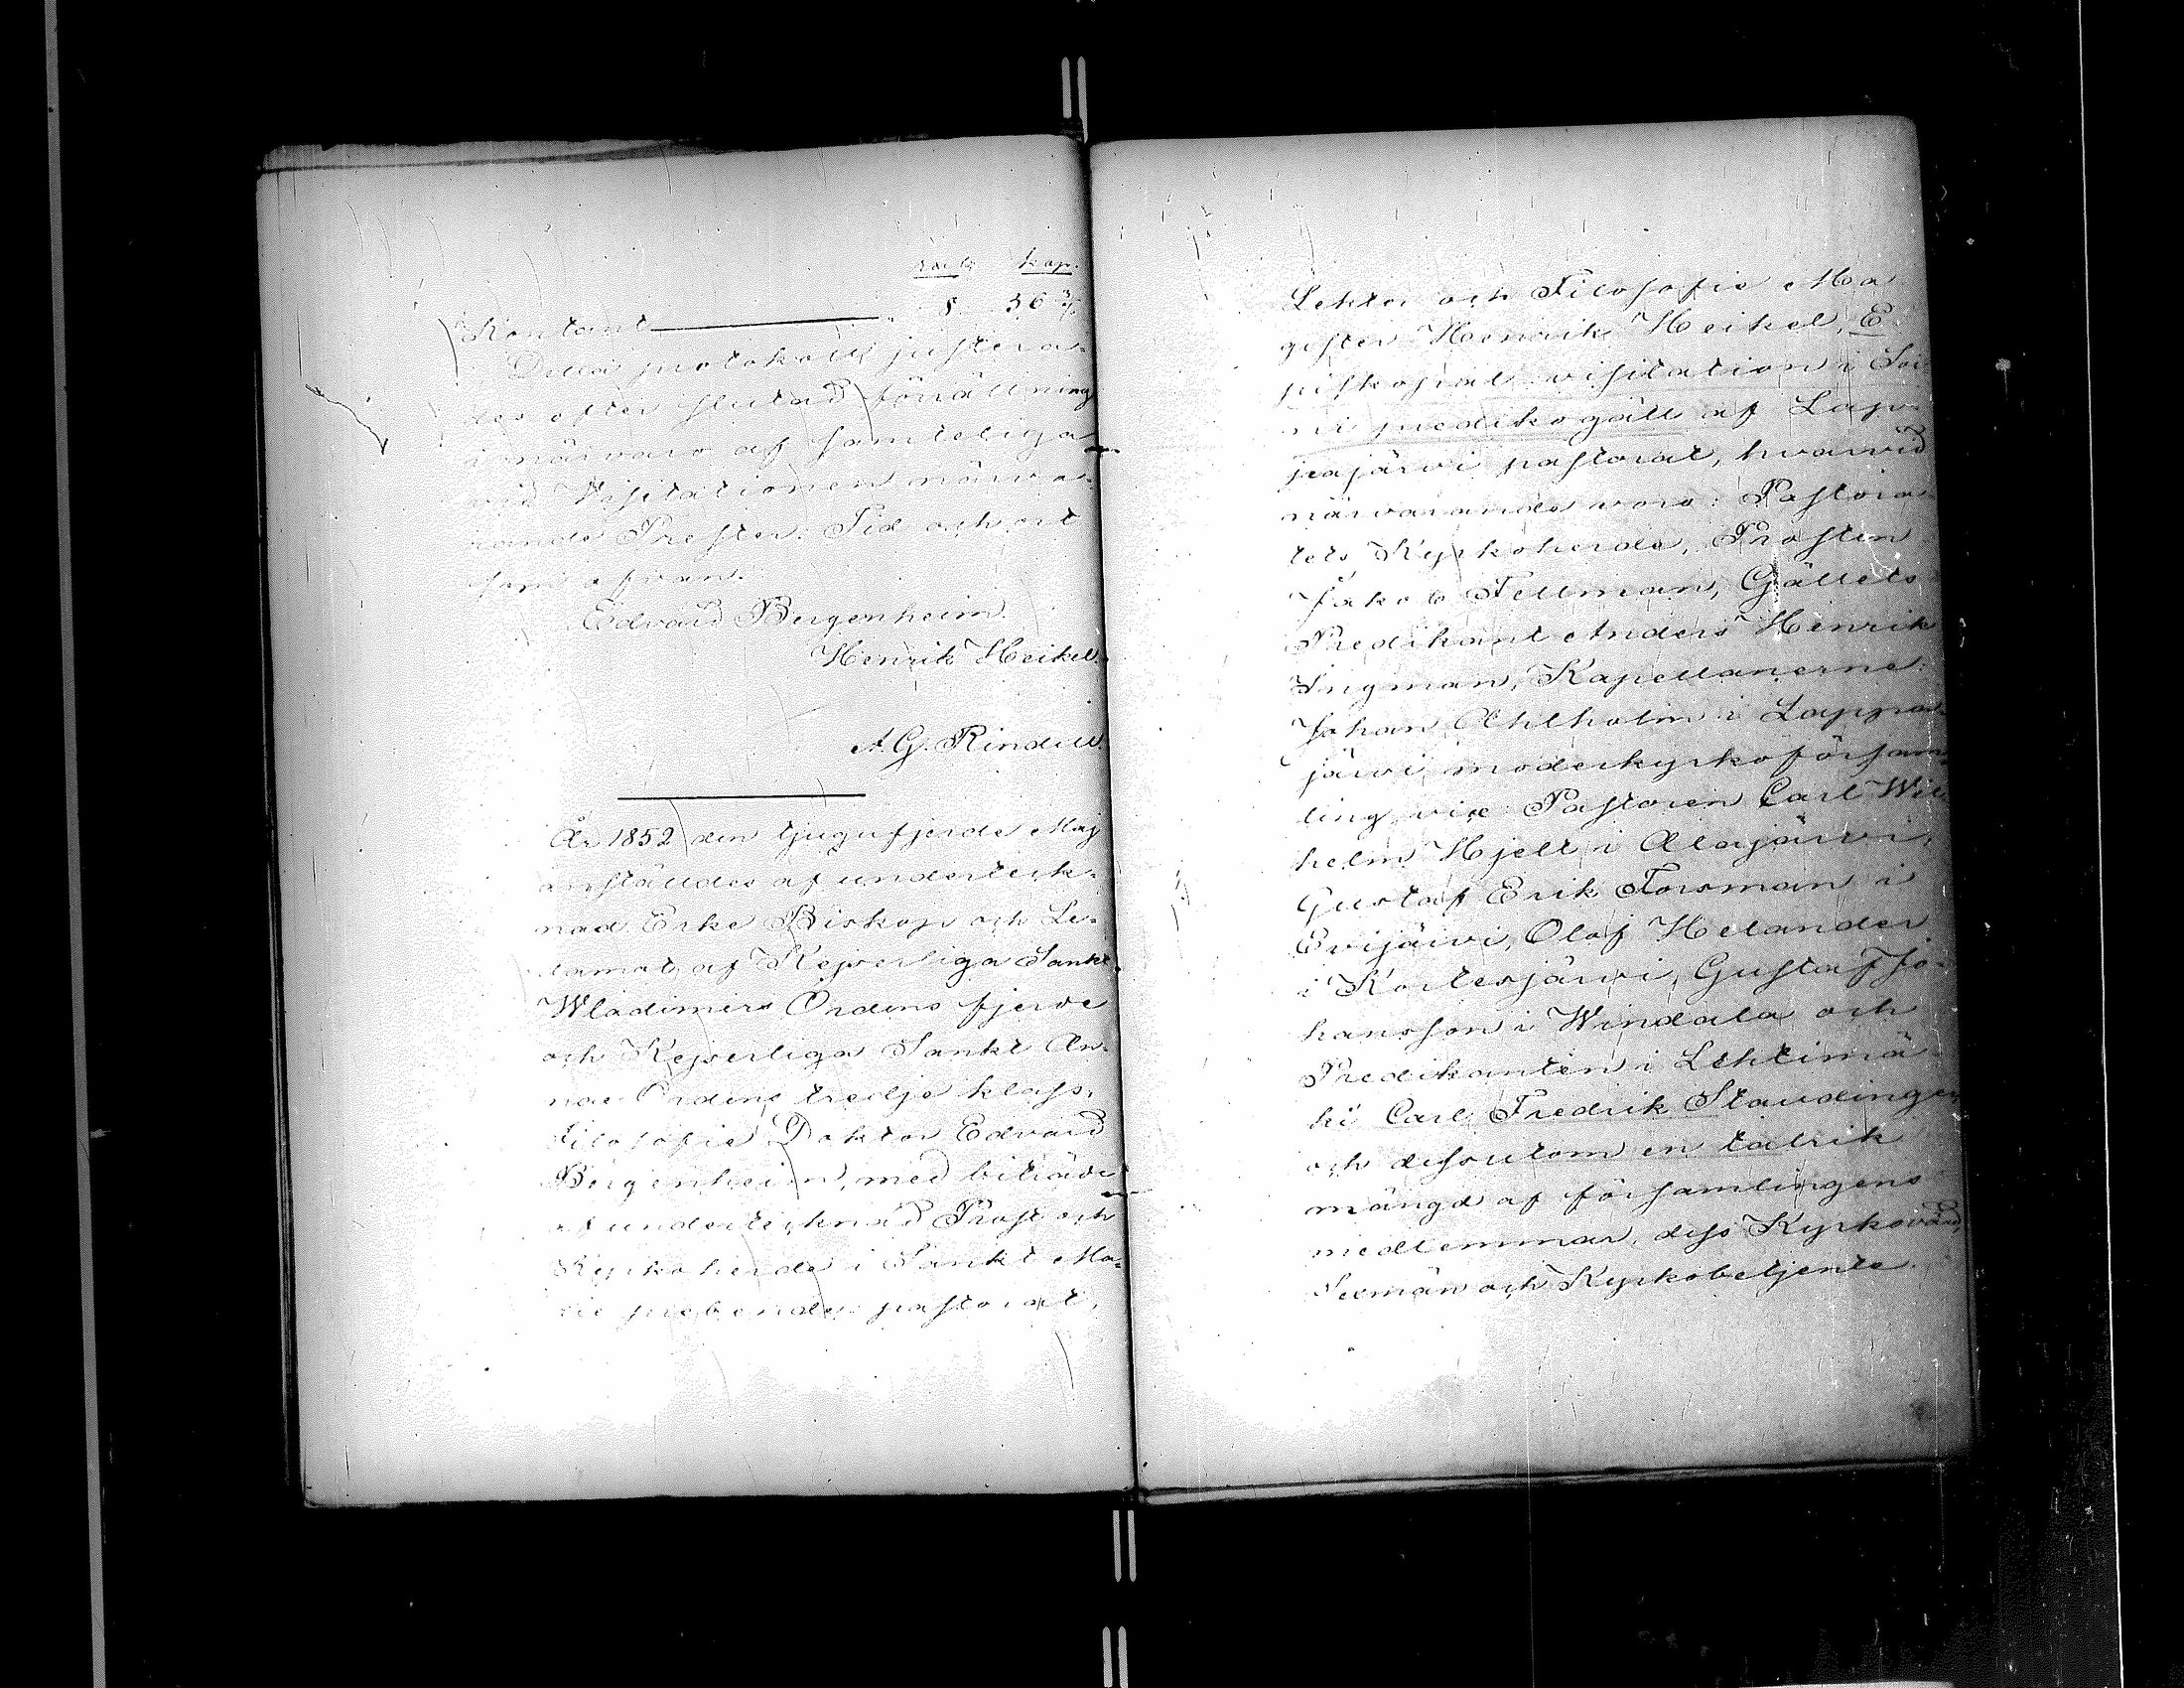 rub. kop.
Kontant 8. 36 3/7
Detta protokoll justera-
des efter slutad förrättning
i närvaro af samteliga
vid Visitationen närva-
rande Prester. Tid och ort
som ofvan.
Edvard Bergenheim.
Henrik Heikel.
A. G. Rindell.
År 1852 den tjugufjerde Maj
anställdes af underteck-
nad Erke Biskop och Le-
damot af Kejserliga Sankt
Wladimirs Ordens fjerde
och Kejserliga Sankt An-
nae Ordens tredje klass,
Filosofie Doktor Edvard
Bergenheim, med biträde
af undertecknad Prost och
Kyrkoherde i Sankt Ma-
rie prebende pastorat,
Lektor och Filosofie Ma
gister Henrik Heikel, E
piskopal visitation i Soi
ni predikogäll af Lap-
pajärvi pastorat, hvarvid
närvarande voro: Pastora
tets Kyrkoherde, Prosten
Jakob Fellman, Gällets
Predikant Anders Henrik
Ingman, Kapellanerne:
Johan Ahlholm i Lappa-
järvi moderkyrkoförsam-
ling, vice Pastoren Carl Wil
helm Hjelt i Alajärvi,
Gustaf Erik Forsman i
Evijärvi, Olof Helander
i Kortesjärvi, Gustaf Jo-
hansson i Windala och
Predikanten i Lehtimä-
ki Carl Fredrik Staudinger
och dessutom en talrik
mängd af församlingens
medlemmar, dess Kyrkovärd,
Sexmän och Kyrkobetjente.